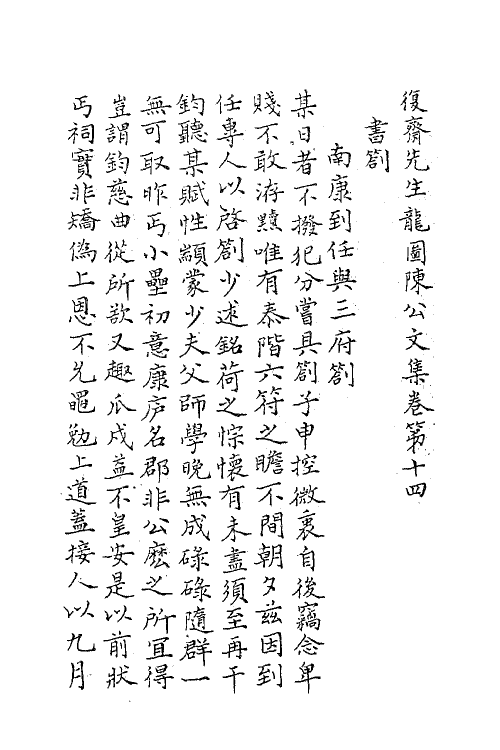 復齋先生龍圖陳公文集卷第十四
書劄
南康到任與三府劄
某日者不撥犯分嘗具劄子申控微裏自後竊念卑
賤不敢洊黷唯有泰階六符之瞻不間朝夕茲因到
任專人以啓劄少述銘荷之悰懷有未盡須至再干
鈞聽某賦性顓蒙少夫父師學晚無成碌碌隨群一
無可取昨丐小壘初意康庐名郡非公麽之所宜得
豈謂鈞慈曲從所欲又趣瓜戍益不皇安是以前狀
丐祠實非矯偽上恩不允黽勉上道蓋接人以九月